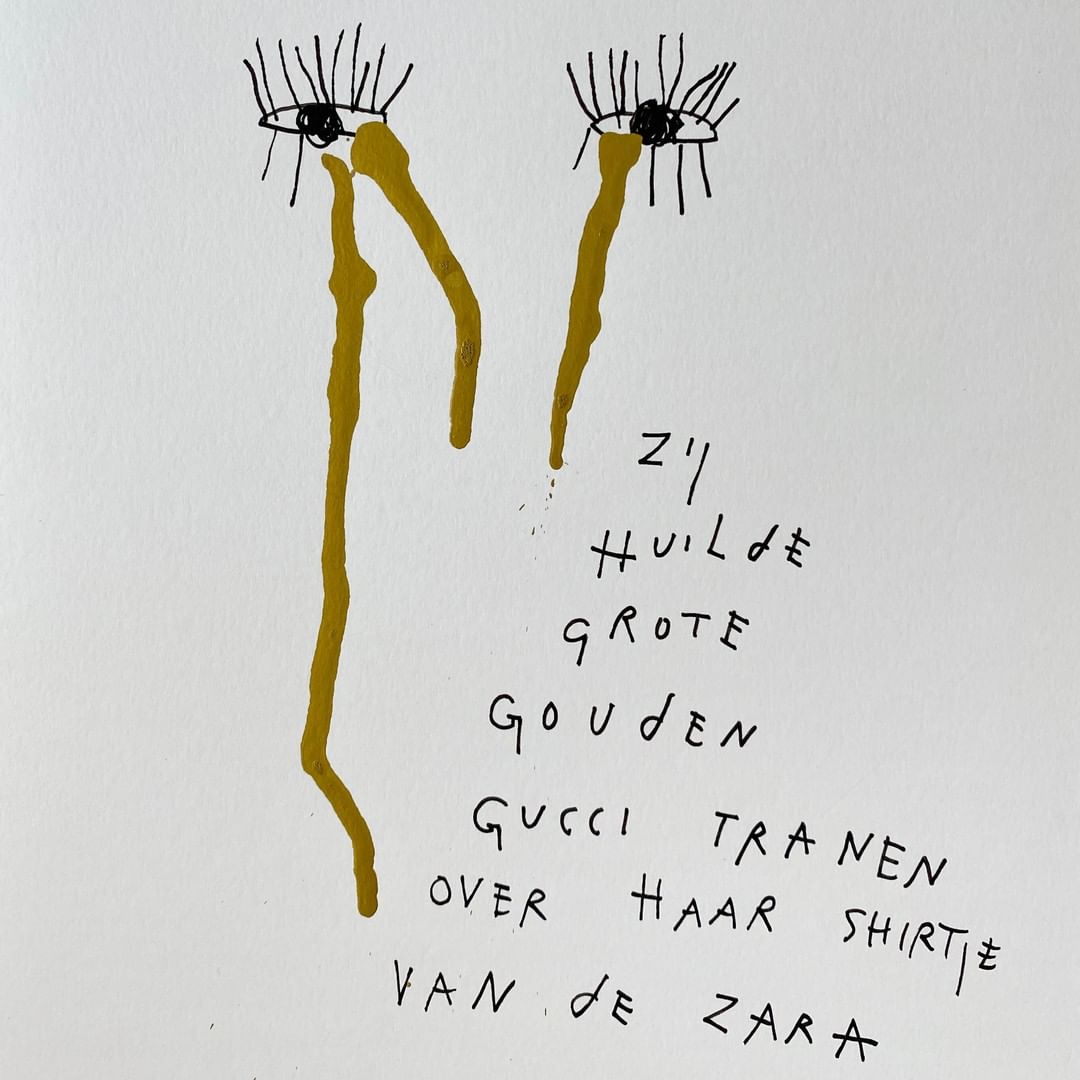 ZIJ
HUILdE
GROTE
GOUdEN
GUCCI TRANEN
OVER HAAR SHIRTJE
VAN dE ZARA